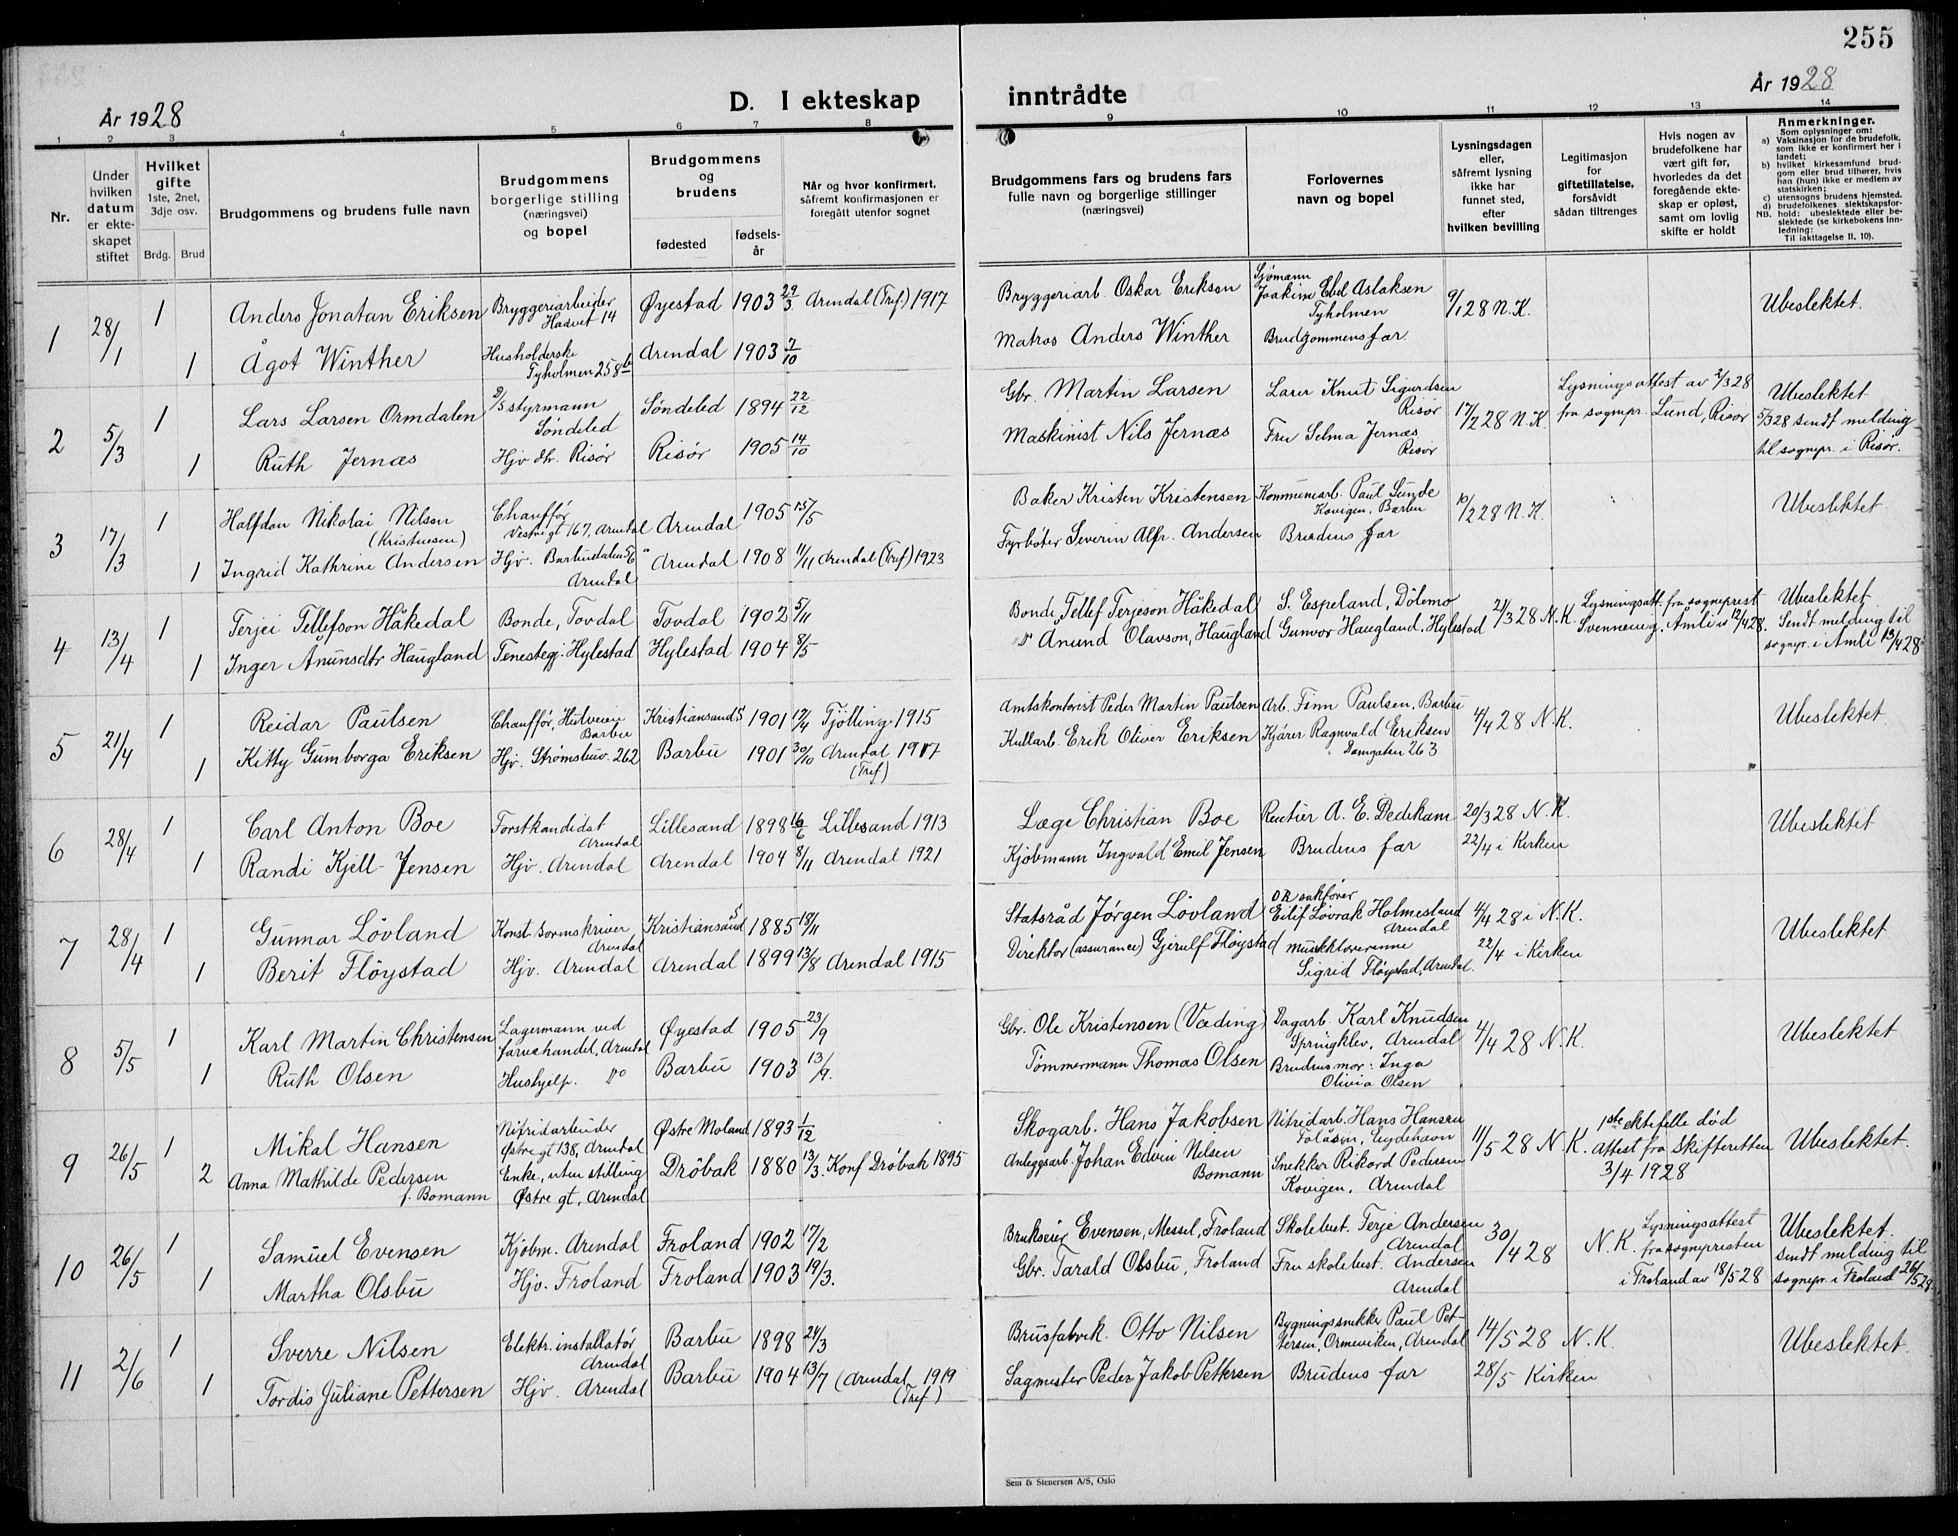 255
År 1928
D. I ekteskap inntrådte
År 1928
1 2 3 4 5 6 7 8 9 10 11 12 13 14
Nr.
Under hvilken datum er ekteskapet stiftet
Hvilket gifte 1ste, 2net, 3dje osv.
Brdg. Brud
Brudgommens og brudens fulle navn
Brudgommens borgerlige stilling (næringsvei) og bopel
Brudgommens og brudens
fødested fødselsår
Når og hvor konfirmert, såfremt konfirmasjonen er foregått utenfor sognet
Brudgommens fars og brudens fars fulle navn og borgerlige stillinger (næringsvei)
Forlovernes navn og bopel
Lysningsdagen eller, såfremt lysning ikke har funnet sted, efter hvilken bevilling
Legitimasjon for giftetillatelse, forsåvidt sådan tiltrenges
Hvis nogen av brudefolkene har vært gift før, hvorledes da det foregående ekteskap er opløst, samt om lovlig skifte er holdt
Anmerkninger.
Som oplysninger om:
a) Vaksinasjon for de brudefolk, som ikke er konfirmert her i landet;
b) hvilket kirkesamfund brudgom eller brud tilhører, hvis han (hun) ikke er medlem av statskirken;
c) utensogns brudens hjemsted.
d) brudefolkenes slektskapsforhold: ubeslektede eller beslektede (se kirkebokens innledning:
NB. Til iakttagelse II, 10).
1 28/1 1 Anders Jonatan Eriksen Bryggeriarbeider Øyestad 1903 29/3 Arendal (Tref.) 1917 Bryggeriarb. Oskar Eriksen Sjømann Joakim Ebel Aslaksen Tyholmen 9/1 28 N.K. Ubeslektet.
1 Ågot Winther Husholderske Tyholmen 258b Arendal 1903 7/10 Matros Anders Winther Brudgommens far
2 5/3 1 Lars Larsen Ormdalen 2/5 styrmann Søndeled Søndeled 1894 22/12 Gbr. Martin Larsen Lærer Knut Sigurdsen Risør 17/2 28 N.K. Lysningsattest av 2/3 28 fra sognepr. Lund, Risør Ubeslektet
1 Ruth Jernæs Hjv dtr. Risør Risør 1905 14/10 Maskinist Nils Jernæs Fru Selma Jernæs Risør 5/3 28 sendt melding til sognepr. i Risør.
3 17/3 1 Halfdan Nikolai Nilsen (Kristensen) Chauffør Vestre gt 167, Arendal Arendal 1905 15/5 Baker Kristen Kristensen Kommunearb. Paul Sunde Kovigen, Barbu 10/2 28 N.K. Ubeslektet
1 Ingrid Kathrine Andersen Hjv. Barbudalen 56 Arendal Arendal 1908 11/11 Arendal (Tref) 1923 Fyrbøter Severin Alfr. Andersen Brudens far
4 13/4 1 Terjei Tellefson Håkedal Bonde, Tovdal Tovdal 1902 5/11 Bonde Tellef Terjeson Håkedal S. Espeland, Dölemo 21/3 28 N.K. Lysningsatt. fra sogneprest Svenneug, Åmli 12/4 28. Ubeslektet
1 Inger Anunsdtr Haugland Tenestegj. Hylestad Hylestad 1904 8/5 Anund Olavson, Haugland Gunvor Haugland, Hylestad Sendt melding til sognepr. i Åmli 13/4 28
5 21/4 1 Reidar Paulsen Chauffør, Barbu Kristiansand S 1901 17/4 Tjölling 1915 Amtskontorist Peder Martin Paulsen Arb. Finn Paulsen, Barbu 4/4 28 N.K. Ubeslektet
1 Kitty Gumborga Eriksen Hjv. Strømsbuv. 262 Barbu 1901 30/10 Arendal 1917 (Tref) Kullarb. Erik Oliver Eriksen Kjører Ragnvald Eriksen 263
6 28/4 1 Carl Anton Boe Forstkandidat Arendal Lillesand 1898 16/6 Lillesand 1913 Læge Christian Boe Rentier A. E. Dedekam 20/3 28 N.K. Ubeslektet
1 Randi Kjell-Jensen Hjv. Arendal Arendal 1904 8/11 Arendal 1921 Kjøbmann Ingvald Emil Jensen Brudens far 22/4 i Kirken
7 28/4 1 Gunnar Lövland Konst. sorenskriver Arendal Kristiansand S 1885 18/11 Statsråd Jörgen Lövland O.R. sakfører Eilif Løvrak Holmesland Arendal 4/4 28 i N.K. Ubeslektet
1 Berit Flöystad Hjv. Arendal Arendal 1899 13/8 Arendal 1915 Direktør (assurance) Gjerulf Fløystad musiklærerinne Sigrid Fløystad, Arendal. 22/4 i Kirken
8 5/5 1 Karl Martin Christensen Lagermann ved farvehandel, Arendal Øyestad 1905 23/9 Gbr. Ole Kristensen (Væding) Dagarb. Karl Knudsen Springklev, Arendal 4/4 28 N.K. Ubeslektet
1 Ruth Olsen Hushjelp. do Barbu 1903 13/9. Tømmermann Thomas Olsen Brudens mor: Inga Olivia Olsen
9 26/5 1 Mikal Hansen Nitridarbeider Østre gt 138, Arendal Østre Moland 1893 1/12 Skogarb. Hans Jakobsen Nitridarb. Hans Hansen Eydehavn 11/5 28 N.K. 1ste ektefelle död Attest fra Skifteretten 3/4 1928 Ubeslektet.
2 Anna Mathilde Pedersen f. Bomann Enke, uten stilling Østre gt, Arendal Dröbak 1880 13/3. Konf Dröbak 1895 Anleggsarb. Johan Edvin Nilsen Bomann Snekker Rikard Pedersen Kovigen, Arendal
10 26/5 1 Samuel Evensen Kjøbm. Arendal Froland 1902 17/2 Brukseier Evensen, Messel, Froland Skolebest. Terje Andersen Arendal 30/4 28 N.K. Lysningsattest fra sognepresten i Froland av 18/5 28 Ubeslektet.
1 Martha Olsbu Hjv. Froland Froland 1903 19/3. Gbr. Tarald Olsbu, Froland Fru skolebest. Andersen Arendal sendt melding til sognepr. i Froland 26/5 28.
11 2/6 1 Sverre Nilsen Elektr. installatør Arendal Barbu 1898 24/3 Brusfabrik. Otto Nilsen Bygningssnekker Paul Pettersen, Ormeviken, Arendal 14/5 28 N.K Ubeslektet.
1 Tordis Juliane Pettersen Hjv. Arendal Barbu 1904 13/7 (Arendal 1919 (Tref) Sagmester Peder Jakob Pettersen Brudens far 28/5 Kirken
Sem & Stenersen A/S, Oslo